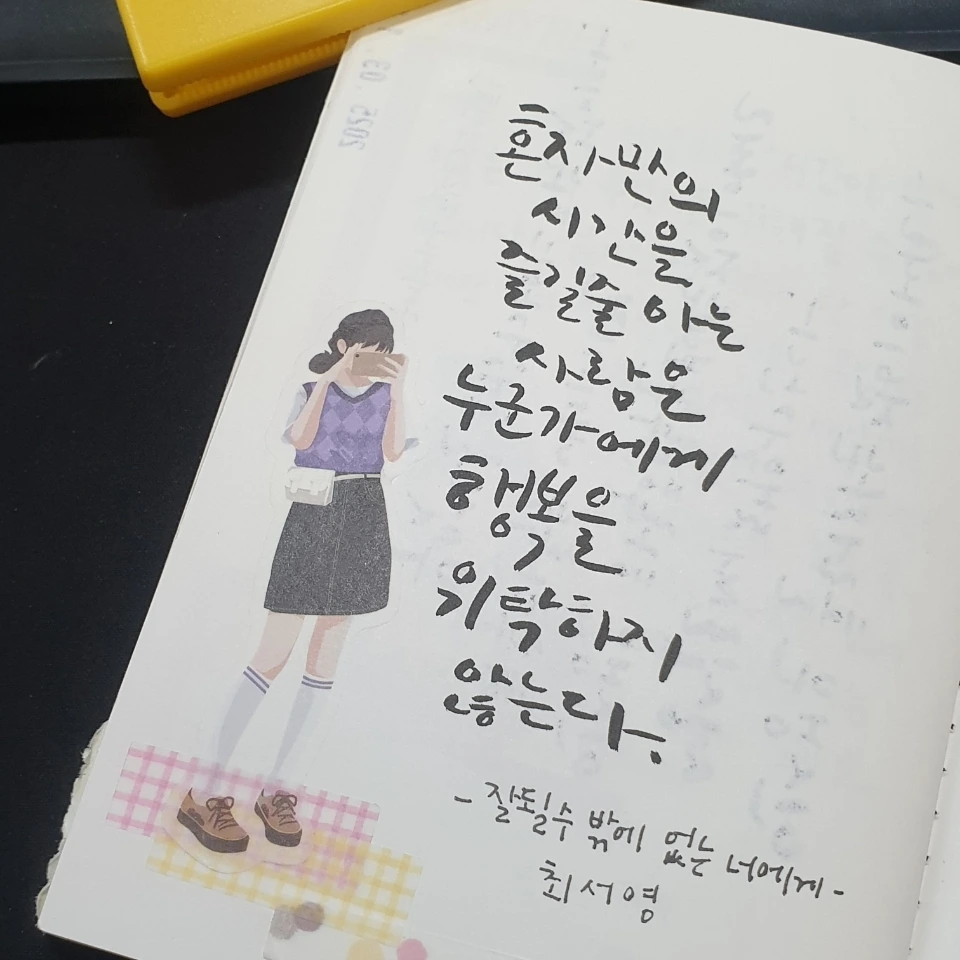 혼자만의
시간을
즐길줄 아는
사람은
누군가에게
행복을
위탁하지
않는다.
- 잘될수 밖에 없는 너에게 -
최서영
2025. 03